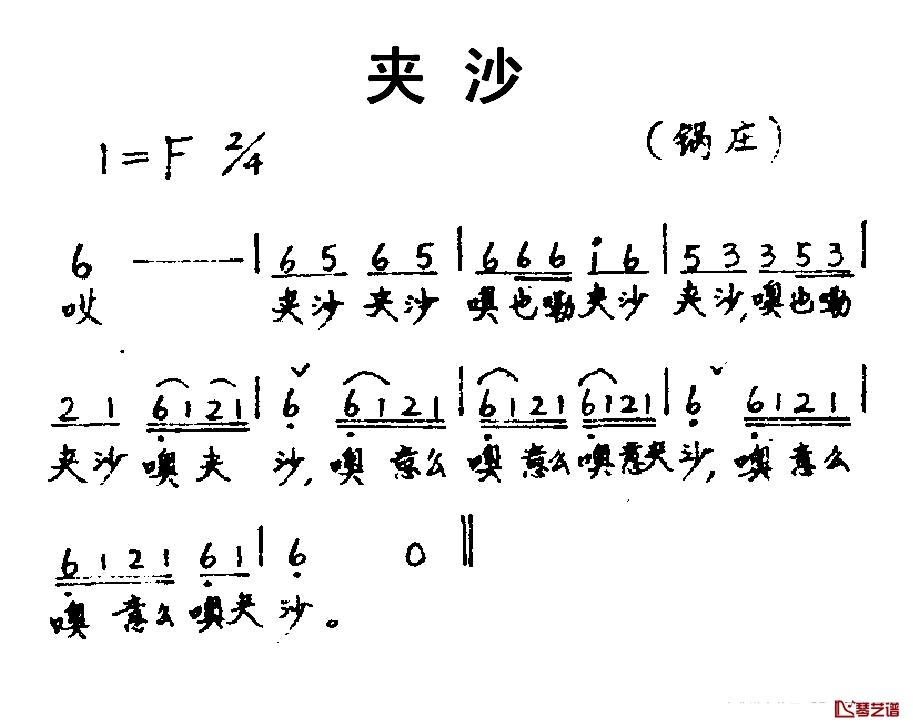 夹沙
1=F 2/4
(锅庄)
6 —— | 6 5 6 5 | 6 6 6 i 6 | 5 3 3 5 3 |
哎 夹沙 夹沙 噢也嘞夹沙 夹沙,噢也嘞
2 1 6 1 2 1 | 6 ˇ 6 1 2 1 | 6 1 2 1 6 1 2 1 | 6 ˇ 6 1 2 1 |
夹沙噢夹 沙,噢意么 噢意么噢意夹沙,噢意么
6 1 2 1 6 1 | 6 0 ‖
噢意么噢夹沙。
琴艺谱